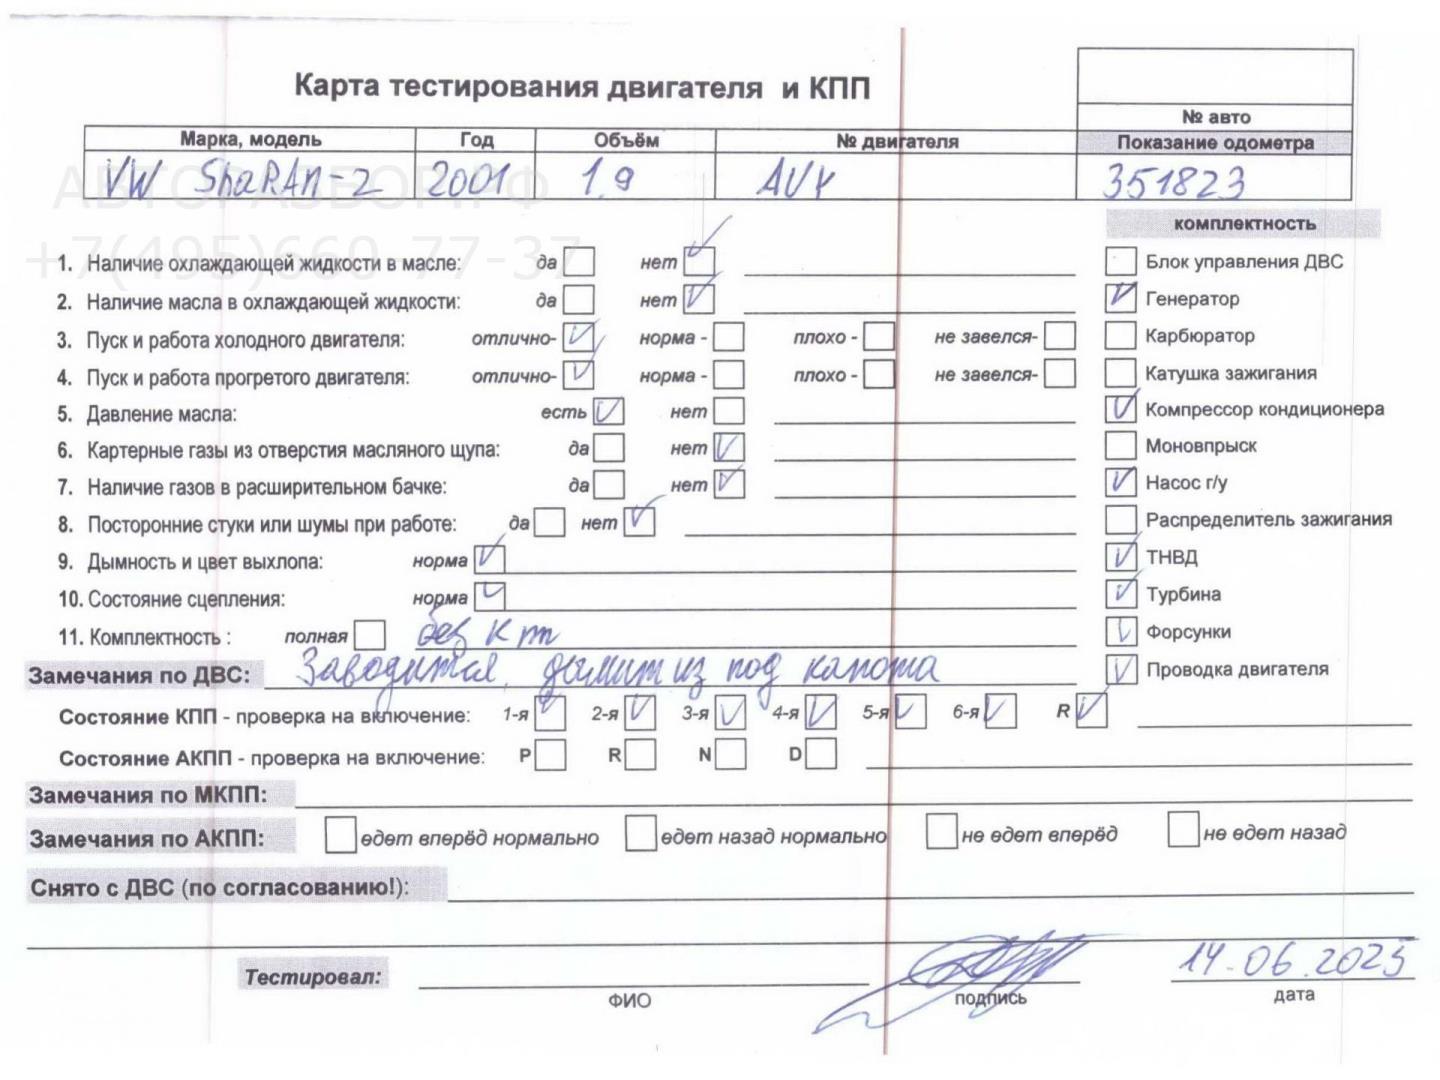 Карта тестирования двигателя и КПП
№ авто
Марка, модель Год Объём № двигателя Показание одометра
VW ShaRAn-2 2001 1.9 AUY 351823
АВТОРАЗБОР.РФ
+7(495)660-77-37
комплектность
1. Наличие охлаждающей жидкости в масле: да нет Блок управления ДВС
2. Наличие масла в охлаждающей жидкости: да нет Генератор
3. Пуск и работа холодного двигателя: отлично- норма - плохо - не завелся- Карбюратор
4. Пуск и работа прогретого двигателя: отлично- норма - плохо - не завелся- Катушка зажигания
5. Давление масла: есть нет Компрессор кондиционера
6. Картерные газы из отверстия масляного щупа: да нет Моновпрыск
7. Наличие газов в расширительном бачке: да нет Насос г/у
8. Посторонние стуки или шумы при работе: да нет Распределитель зажигания
9. Дымность и цвет выхлопа: норма ТНВД
10. Состояние сцепления: норма Турбина
11. Комплектность : полная без кпп Форсунки
Замечания по ДВС: Заводится, дымит из под капота Проводка двигателя
Состояние КПП - проверка на включение: 1-я 2-я 3-я 4-я 5-я 6-я R
Состояние АКПП - проверка на включение: P R N D
Замечания по МКПП:
Замечания по АКПП: едет вперёд нормально едет назад нормально не едет вперёд не едет назад
Снято с ДВС (по согласованию!):
Тестировал: 14.06.2025
ФИО подпись дата